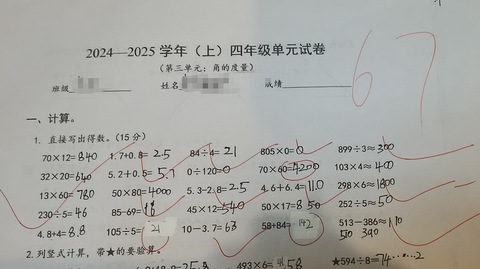 2024—2025 学年（上）四年级单元试卷
（第三单元：角的度量）
班级 姓名 成绩 67
一、计算。
1. 直接写出得数。（15 分）
70×12=840 1.7+0.8=2.5 84÷4=21 805×0=0 899÷3≈300
32×20=640 5.2+0.5=5.7 0÷120=0 70×60=4200 103×4≈400
13×60=780 50×80=4000 5.3-2.8=2.5 4.6+6.4=11.0 298×6≈1800
230÷5=46 85-69= 45×12=540 50×17=850 252÷5≈50
4.8+4=8.8 105÷5=21 10-3.7=6.3 58+84=142 513-386≈110
2. 列竖式计算，带★的要验算。
493×6= ★594÷8=74……2